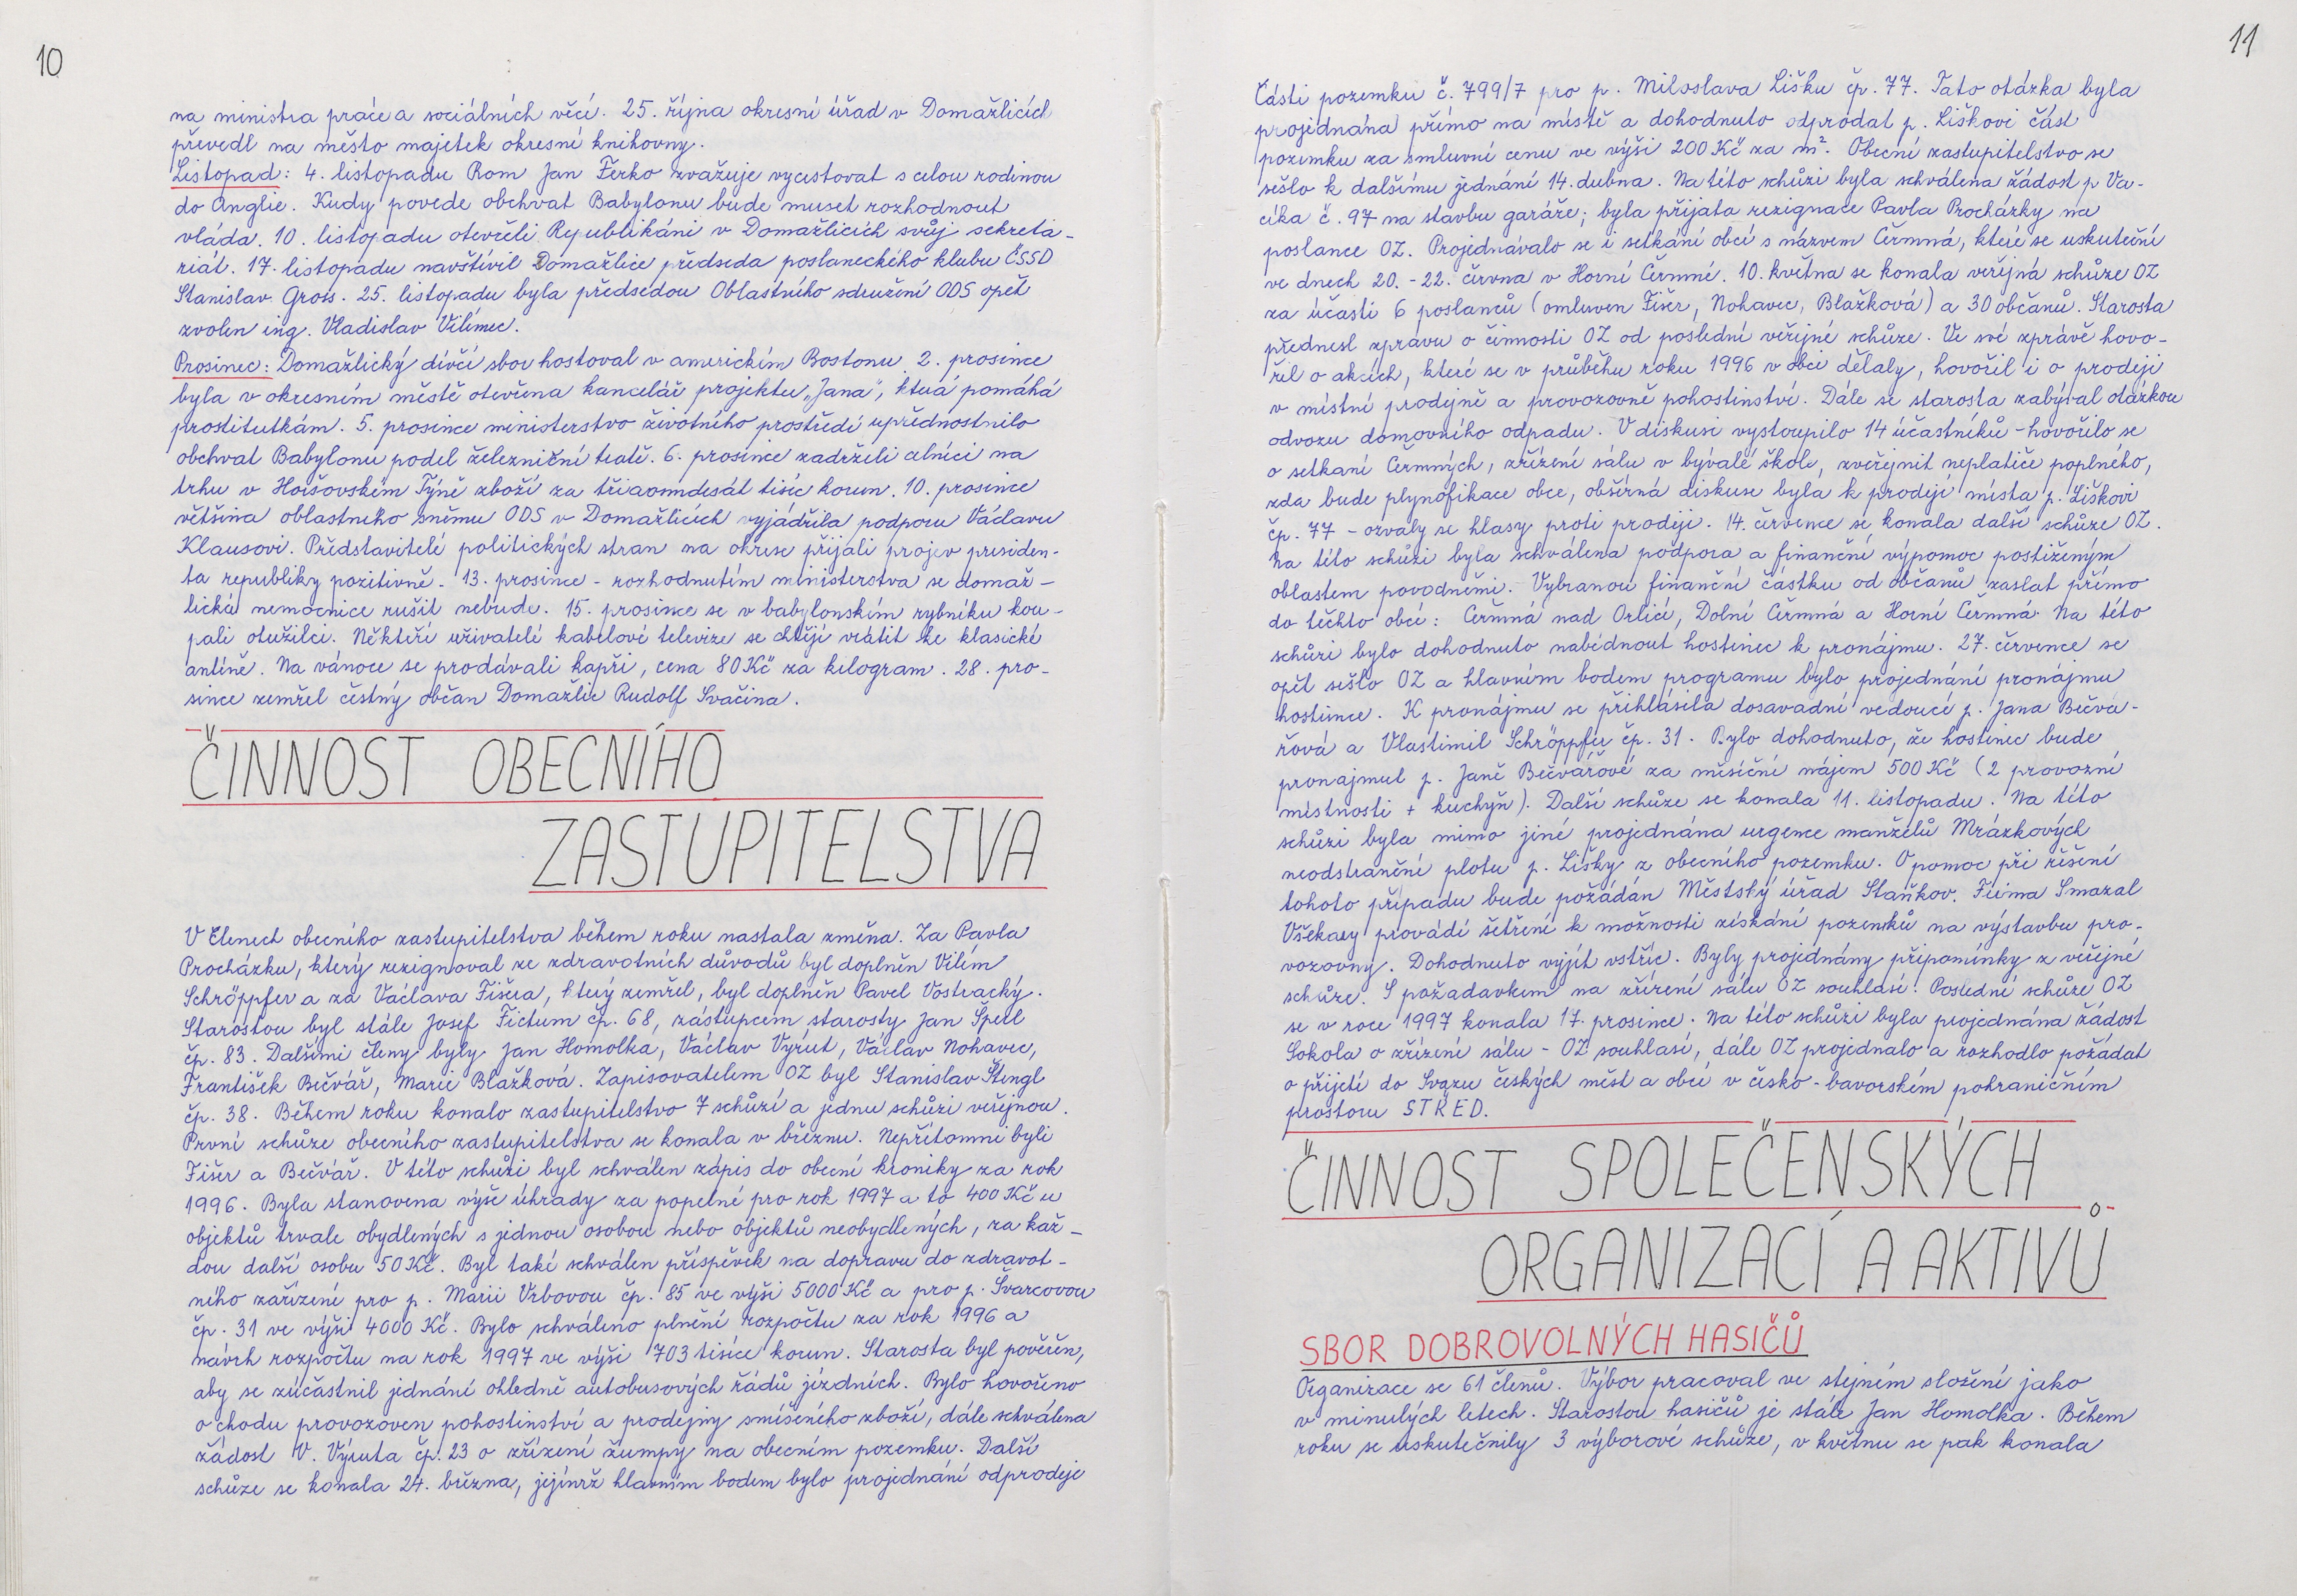 10
na ministra práce a sociálních věcí. 25. října okresní úřad v Domažlicích
převedl na město majetek okresní knihovny.
Listopad: 4. listopadu Rom Jan Ferko zvažuje vycestovat s celou rodinou
do Anglie. Kudy povede obchvat Babylonu bude muset rozhodnout
vláda. 10. listopadu otevřeli Republikáni v Domažlicích svůj sekreta-
riát. 17. listopadu navštívil Domažlice předseda poslaneckého klubu ČSSD
Stanislav Gross. 25. listopadu byla předsedou Oblastního sdružení ODS opět
zvolen ing. Vladislav Vilímec.
Prosinec: Domažlický dívčí sbor hostoval v americkém Bostonu. 2. prosince
byla v okresním městě otevřena kancelář projektu „Jana", která pomáhá
prostitutkám. 5. prosince ministerstvo životního prostředí upřednostnilo
obchvat Babylonu podél železniční tratě. 6. prosince zadrželi celníci na
trhu v Horšovském Týně zboží za třiaosmdesát tisíc korun. 10. prosince
většina oblastního sněmu ODS v Domažlicích vyjádřila podporu Václavu
Klausovi. Představitelé politických stran na okrese přijali projev presiden-
ta republiky pozitivně. 13. prosince - rozhodnutím ministerstva se domaž-
lická nemocnice rušit nebude. 15. prosince se v babylonském rybníku kou-
pali otužilci. Někteří uživatelé kabelové televize se chtějí vrátit ke klasické
anténě. Na vánoce se prodávali kapři, cena 80 Kč za kilogram. 28. pro-
since zemřel čestný občan Domažlic Rudolf Svačina.
ČINNOST OBECNÍHO
ZASTUPITELSTVA
V členech obecního zastupitelstva během roku nastala změna. Za Pavla
Procházku, který rezignoval ze zdravotních důvodů byl doplněn Vilém
Schröpfer a za Václava Fišera, který zemřel, byl doplněn Pavel Vostracký.
Starostou byl stále Josef Fictum čp. 68, zástupcem starosty Jan Špetl
čp. 83. Dalšími členy byly Jan Homolka, Václav Výrut, Václav Nohavec,
František Bečvář, Marie Blažková. Zapisovatelem OZ byl Stanislav Stengl
čp. 38. Během roku konalo zastupitelstvo 7 schůzí a jednu schůzi veřejnou.
První schůze obecního zastupitelstva se konala v březnu. Nepřítomni byli
Fišer a Bečvář. V této schůzi byl schválen zápis do obecní kroniky za rok
1996. Byla stanovena výše úhrady za popelné pro rok 1997 a to 400 Kč u
objektů trvale obydlených s jednou osobou nebo objektů neobydlených, za kaž-
dou další osobu 50 Kč. Byl také schválen příspěvek na dopravu do zdravot-
ního zařízení pro p. Marii Vrbovou čp. 85 ve výši 5000 Kč a pro p. Švarcovou
čp. 31 ve výši 4000 Kč. Bylo schváleno plnění rozpočtu za rok 1996 a
návrh rozpočtu na rok 1997 ve výši 703 tisíce korun. Starosta byl pověřen,
aby se zúčastnil jednání ohledně autobusových řádů jízdních. Bylo hovořeno
o chodu provozoven pohostinství a prodejny smíšeného zboží, dále schválena
žádost V. Výruta čp. 23 o zřízení žumpy na obecním pozemku. Další
schůze se konala 24. března, jejímž hlavním bodem bylo projednání odprodeje
11
části pozemku č. 799/7 pro p. Miloslava Lišku čp. 77. Tato otázka byla
projednána přímo na místě a dohodnuto odprodat p. Liškovi část
pozemku za smluvní cenu ve výši 200 Kč za m². Obecní zastupitelstvo se
sešlo k dalšímu jednání 14. dubna. Na této schůzi byla schválena žádost p Va-
cíka č. 97 na stavbu garáže; byla přijata rezignace Pavla Procházky na
poslance OZ. Projednávalo se i setkání obcí s názvem Čermná, které se uskuteční
ve dnech 20. - 22. června v Horní Čermné. 10. května se konala veřejná schůze OZ
za účasti 6 poslanců (omluven Fišer, Nohavec, Blažková) a 30 občanů. Starosta
přednesl zprávu o činnosti OZ od poslední veřejné schůze. Ve své zprávě hovo-
řil o akcích, které se v průběhu roku 1996 v obci dělaly, hovořil i o prodeji
v místní prodejně a provozovně pohostinství. Dále se starosta zabýval otázkou
odvozu domovního odpadu. V diskusi vystoupilo 14 účastníků - hovořilo se
o setkaní Čermných, zřízení sálu v bývalé škole, zveřejnit neplatiče poplného,
zda bude plynofikace obce, obšírná diskuse byla k prodeji místa p. Liškovi
čp. 77 - ozvaly se hlasy proti prodeji. 14. července se konala další schůze OZ.
Na této schůzi byla schválena podpora a finanční výpomoc postiženým
oblastem povodněmi. Vybranou finanční částku od občanů zaslat přímo
do těchto obcí: Čermná nad Orlicí, Dolní Čermná a Horní Čermná. Na této
schůzi bylo dohodnuto nabídnout hostinec k pronájmu. 27. července se
opět sešlo OZ a hlavním bodem programu bylo projednání pronájmu
hostince. K pronájmu se přihlásila dosavadní vedoucí p. Jana Bečvá-
řová a Vlastimil Schröppfer čp. 31. Bylo dohodnuto, že hostinec bude
pronajmut p. Janě Bečvářové za měsíční nájem 500 Kč (2 provozní
místnosti + kuchyň). Další schůze se konala 11. listopadu. Na této
schůzi byla mimo jiné projednána urgence manželů Mrázkových
neodstranění plotu p. Lišky z obecního pozemku. O pomoc při řešení
tohoto případu bude požádán Městský úřad Staňkov. Firma Smazal
Všekary provádí šetření k možnosti získání pozemků na výstavbu pro-
vozovny. Dohodnuto vyjít vstříc. Byly projednány připomínky z veřejné
schůze. S požadavkem na zřízení sálu OZ souhlasí. Poslední schůze OZ
se v roce 1997 konala 17. prosince. Na této schůzi byla projednána žádost
Sokola o zřízení sálu - OZ souhlasí, dále OZ projednalo a rozhodlo požádat
o přijetí do Svazu českých měst a obcí v česko-bavorském pohraničním
prostoru STŘED.
ČINNOST SPOLEČENSKÝCH
ORGANIZACÍ A AKTIVŮ
SBOR DOBROVOLNÝCH HASIČŮ
Organizace se 61 členů. Výbor pracoval ve stejném složení jako
v minulých letech. Starostou hasičů je stále Jan Homolka. Během
roku se uskutečnily 3 výborové schůze, v květnu se pak konala